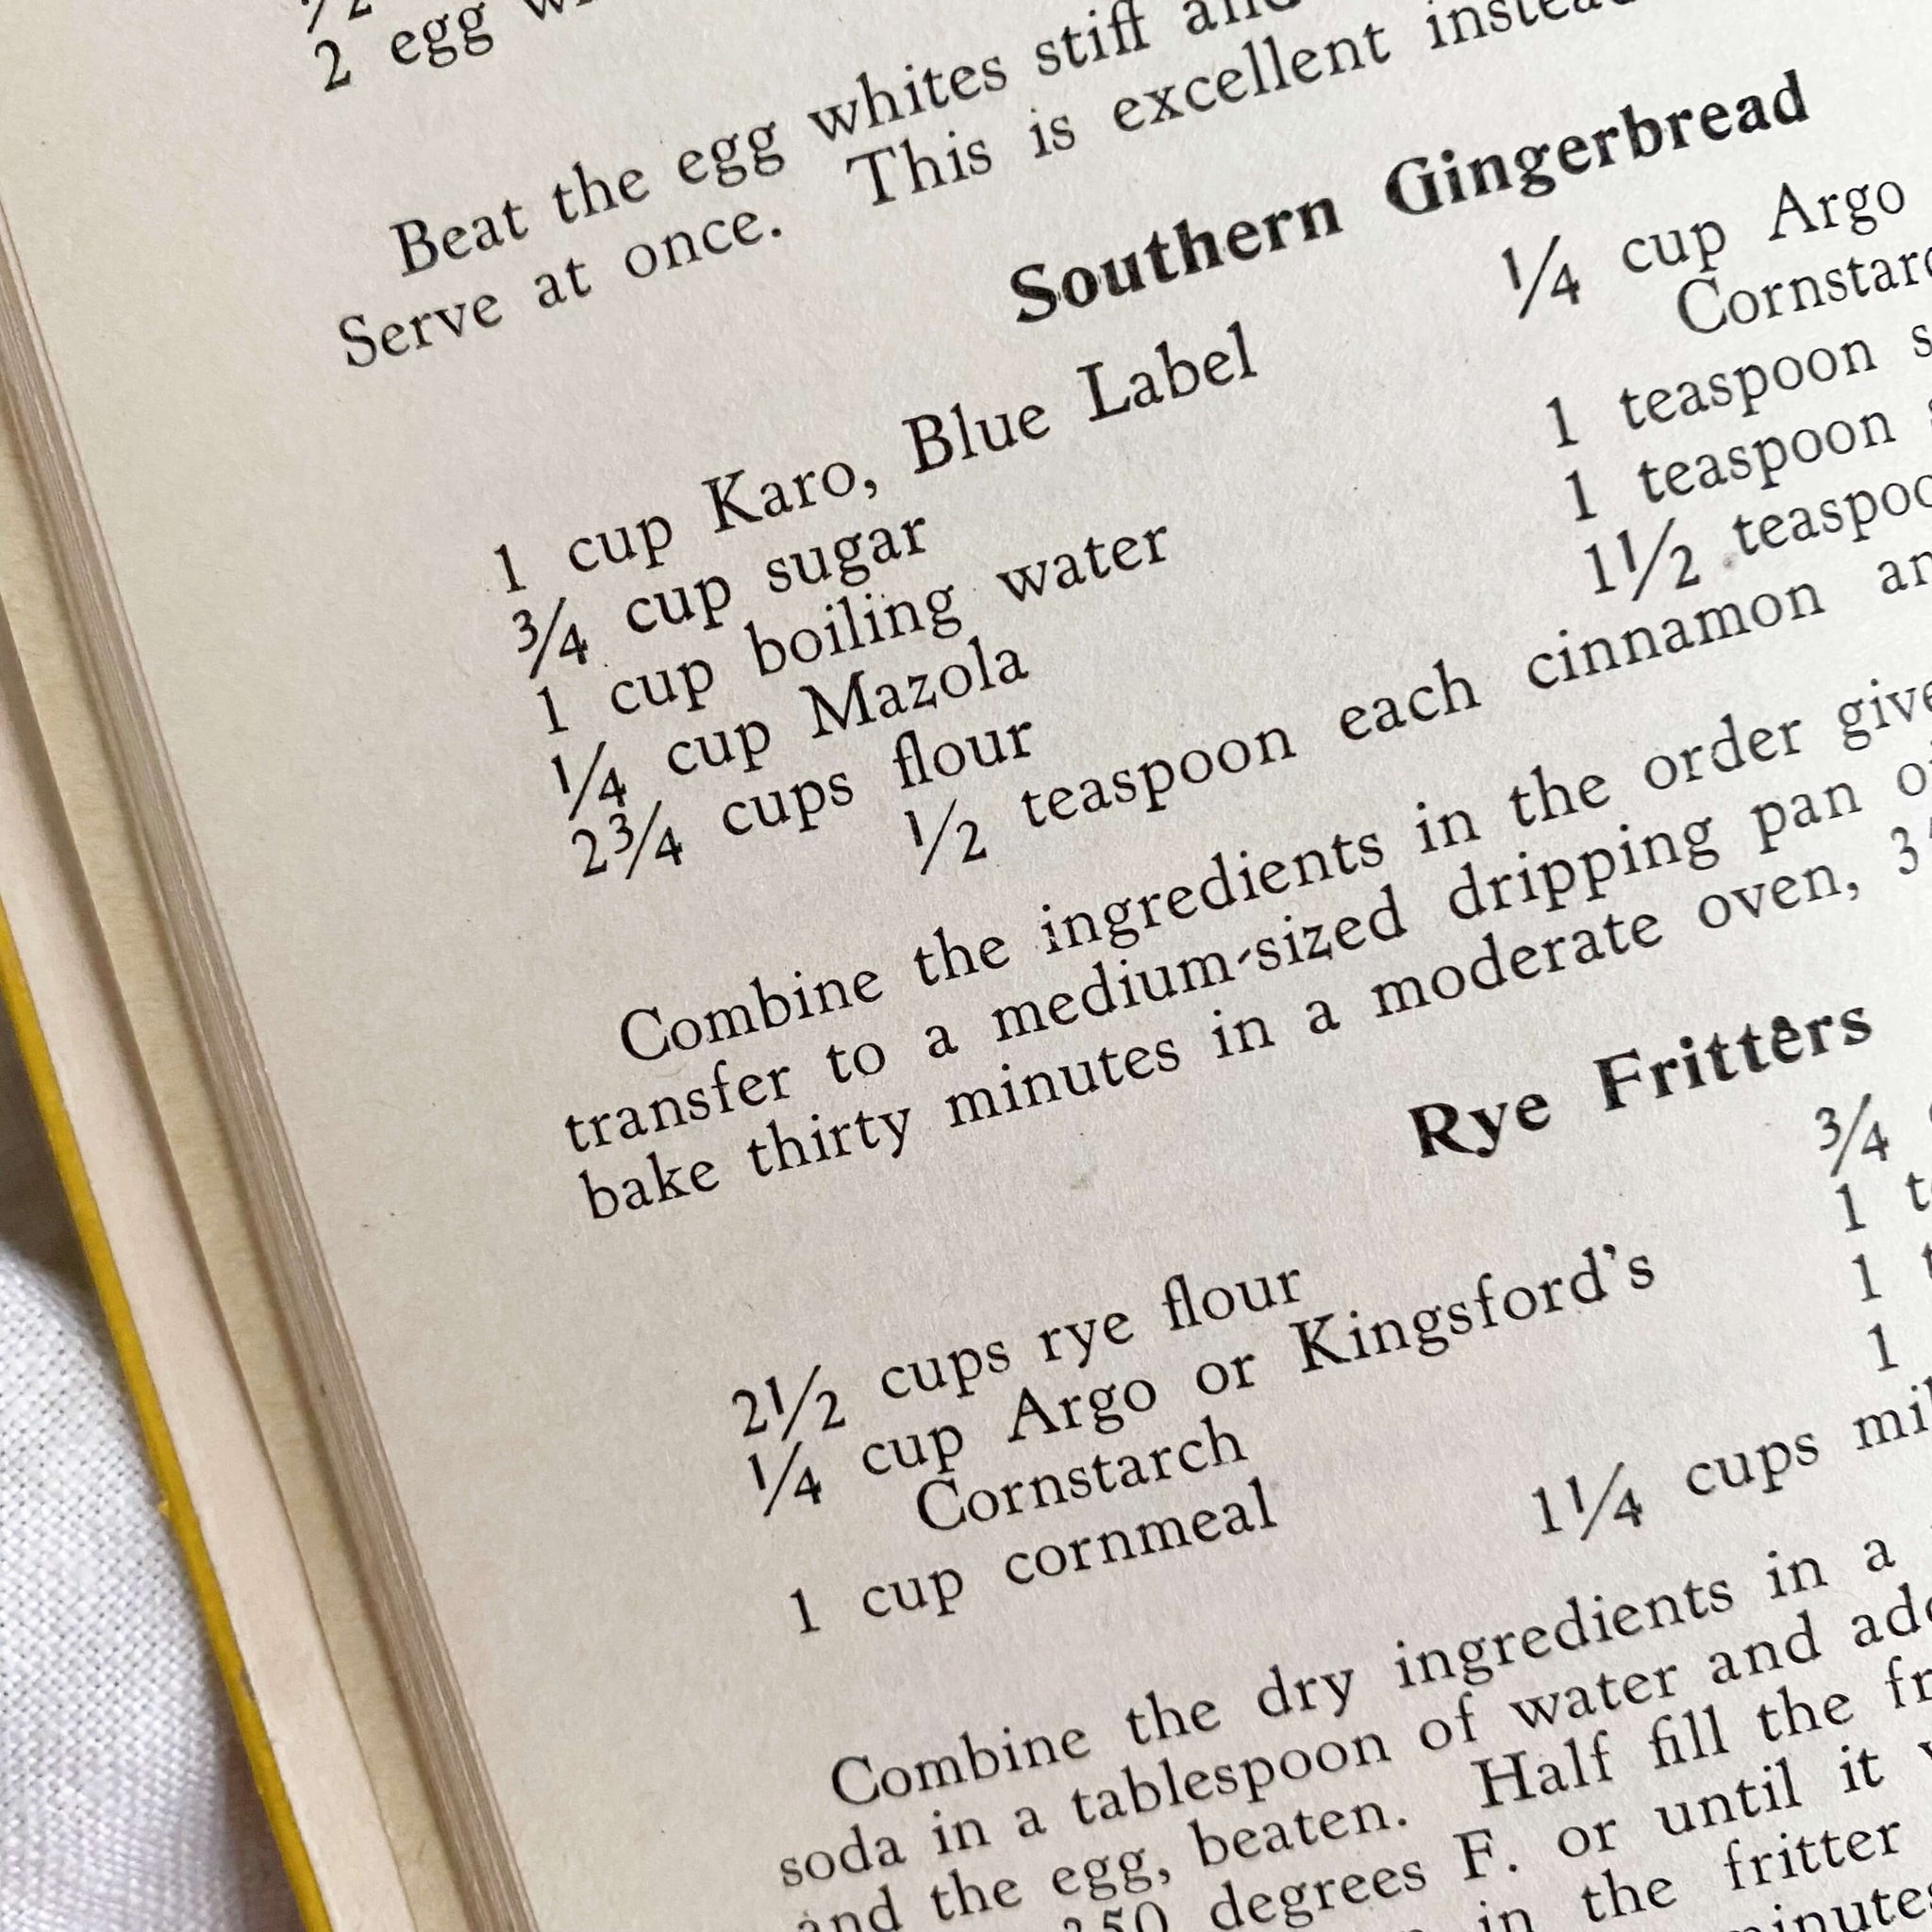 2 egg
Beat the egg whites stiff
Serve at once. This is excellent
Southern Gingerbread
1 cup Karo, Blue Label
¾ cup sugar
1 cup boiling water
¼ cup Mazola
2¾ cups flour
¼ cup Argo
1 teaspoon
1 teaspoon
1½
½ teaspoon each cinnamon
Combine the ingredients in the order
transfer to a medium-sized dripping pan
bake thirty minutes in a moderate oven,
Rye Fritters
2½ cups rye flour
¼ cup Argo or Kingsford's
Cornstarch
1 cup cornmeal
¾
1
1
1
1¼ cups
Combine the dry ingredients in a
soda in a tablespoon of water and
and the egg, beaten. Half fill the
350 degrees F. or until it
in the fritter